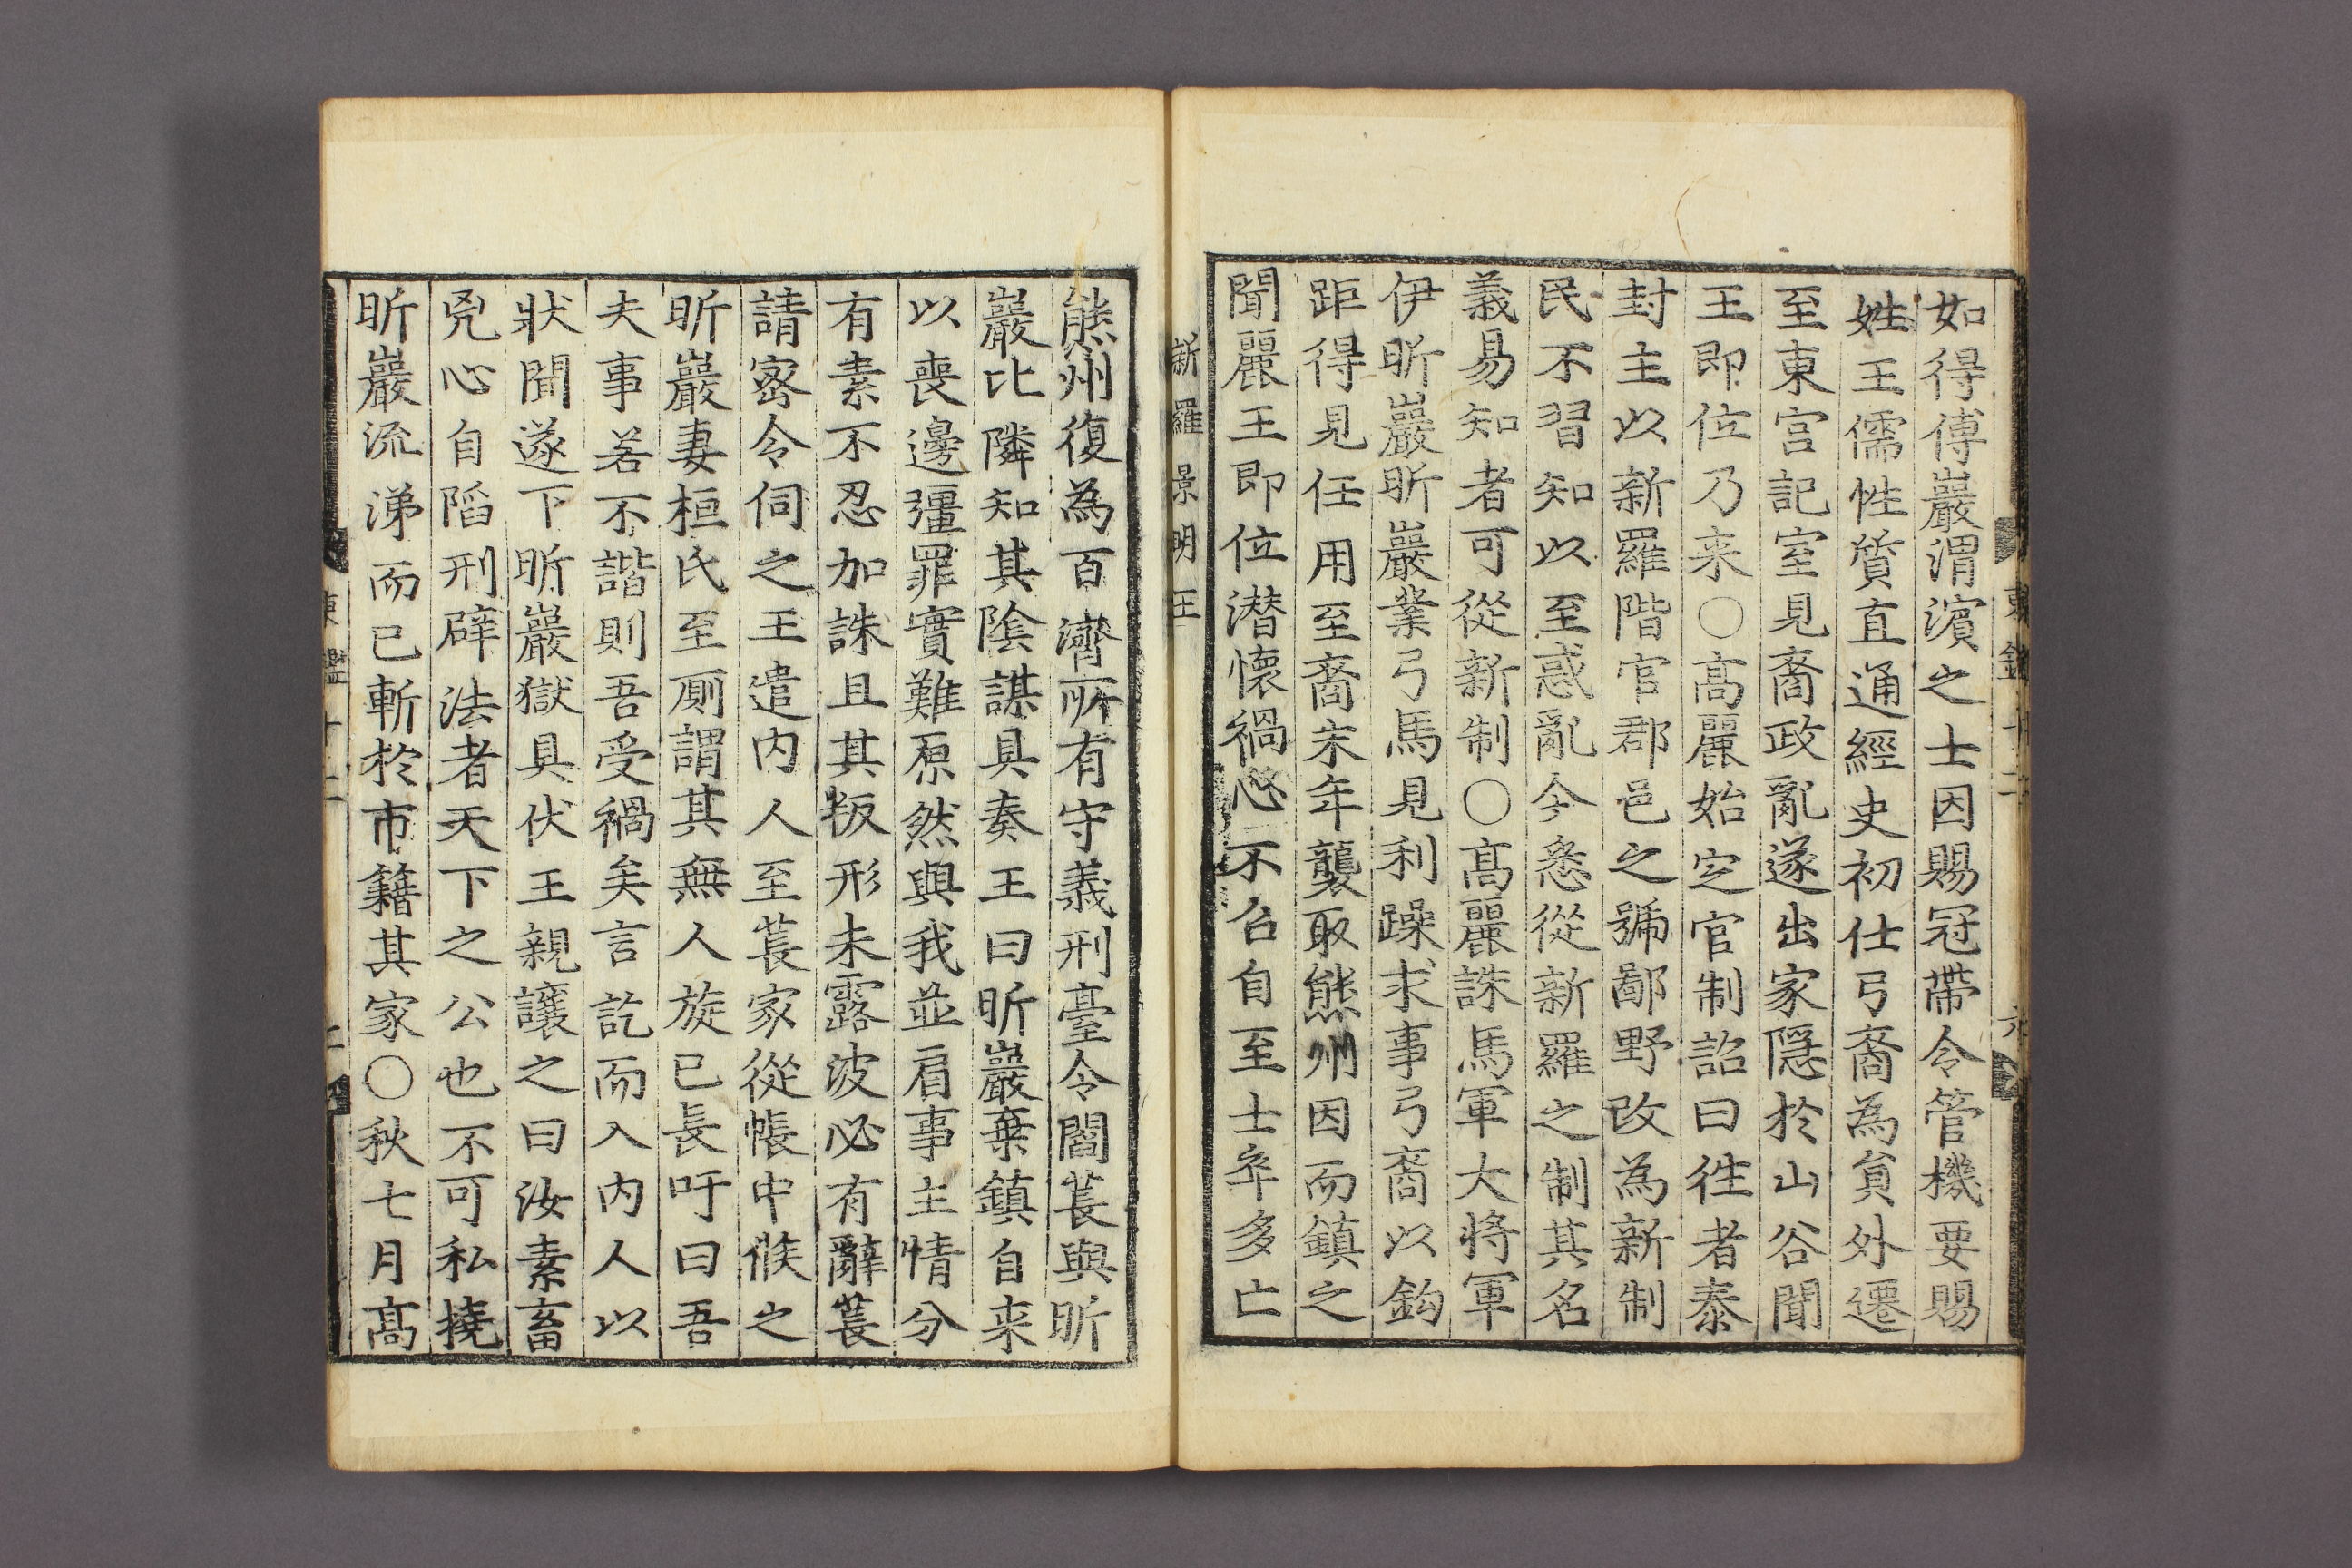 如得傅巖渭濱之士因賜冠帶令管機要賜
姓王儒性質直通經史初仕弓裔為負外遷
至東宮記室見裔政亂遂出家隱於山谷聞
王即位乃来○髙麗始定官制詔曰徃者泰
封主以新羅階官郡邑之號鄙野改為新制
民不習知以至惑亂今悉從新羅之制其名
義易知者可從新制○髙麗誅馬軍大將軍
伊昕巖昕巖業弓馬見利躁求事弓裔以鈎
距得見任用至裔末年襲取熊州因而鎮之
聞麗王即位潜懐禍心不召自至士卒多亡
新羅景明王
熊州復為百濟所有守義刑臺令閻萇與昕
巖比隣知其隂謀具奏王曰昕巖棄鎮自来
以喪邊彊罪實難原然與我並肩事主情分
有素不忍加誅且其叛形未露波必有辭萇
請宻令伺之王遣内人至萇家從帳中候之
昕巖妻桓氏至厠謂其無人旋已長吁曰吾
夫事若不諧則吾受禍矣言訖而入内人以
狀聞遂下昕巖獄具伏王親讓之曰汝素畜
兇心自䧟刑辟法者天下之公也不可私撓
昕巖流涕而已斬於市籍其家○秋七月髙